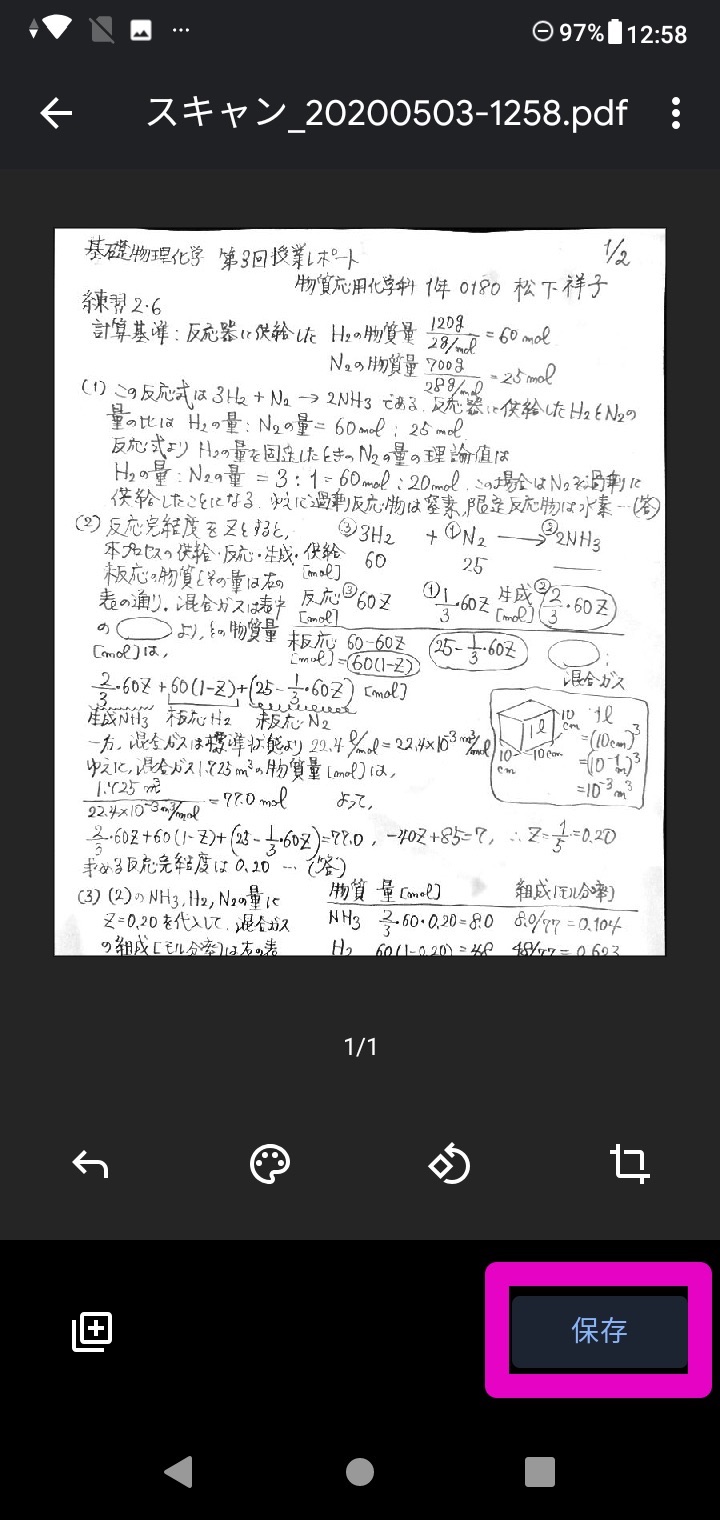 97% 12:58
スキャン_20200503-1258.pdf
基礎物理化学 第3回授業レポート 1/2
物質応用化学科 1年 0180 松下祥子
練習2・6
計算基準:反応器に供給した H₂の物質量 120g/2g/mol = 60 mol
N₂の物質量 700g/28g/mol = 25 mol
(1) この反応式は 3H₂ + N₂ → 2NH₃ である。反応器に供給したH₂とN₂の
量の比は H₂の量:N₂の量 = 60 mol : 25 mol
反応式より H₂の量を固定したときのN₂の量の理論値は
H₂の量:N₂の量 = 3:1 = 60mol : 20mol この場合はN₂を過剰に
供給したことになる。ゆえに過剰反応物は窒素、限定反応物は水素…(答)
(2) 反応完結度をZとすると、 ③3H₂ + ①N₂ → ②2NH₃
本プロセスの供給・反応・生成・ 供給[mol] 60 25 —
未反応の物質とその量は右の
表の通り。混合ガスは表中 反応[mol] ③60Z ①1/3・60Z 生成[mol] ②2/3・60Z
の より、その物質量 未反応[mol] 60-60Z =60(1-Z) 25-1/3・60Z ;
[mol]は、 混合ガス
2/3・60Z + 60(1-Z) + (25-1/3・60Z) [mol]
生成NH₃ 未反応H₂ 未反応N₂
10cm 10cm 10cm 1l 1l =(10cm)³ =(10⁻¹m)³ =10⁻³m³
一方、混合ガスは標準状態より 22.4 l/mol = 22.4×10⁻³ m³/mol
ゆえに、混合ガス1.725m³の物質量[mol]は、
1.725 m³/22.4×10⁻³m³/mol = 77.0 mol よって、
2/3・60Z+60(1-Z)+(25-1/3・60Z)=77.0 , -40Z+85=77, ∴Z=1/5=0.20
求める反応完結度は 0.20 … (答)
(3) (2)のNH₃,H₂,N₂の量に 物質 量[mol] 組成(モル分率)
Z=0.20を代入して、混合ガス NH₃ 2/3・60・0.20=8.0 8.0/77=0.104
の組成[モル分率]は右の表 H₂ 60(1-0.20)=48 48/77=0.623
1/1
保存